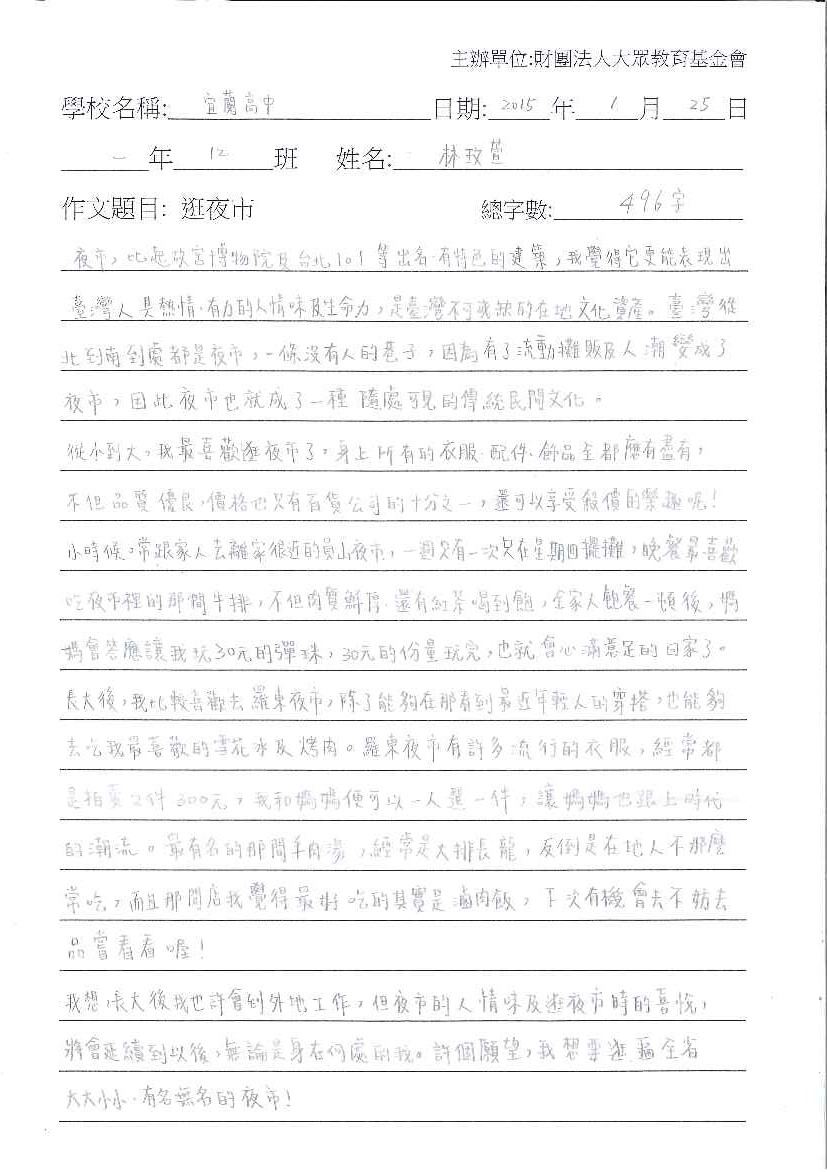 主辦單位:財團法人大眾教育基金會
學校名稱: 宜蘭高中 日期: 2015 年 1 月 25 日
一 年 12 班 姓名: 林玫萱
作文題目: 逛夜市 總字數: 496字
夜市，比起故宮博物院及台北101等出名、有特色的建築，我覺得它更能表現出
臺灣人具熱情、有力的人情味及生命力，是臺灣不可或缺的在地文化資產。臺灣從
北到南到處都是夜市，一條沒有人的巷子，因為有了流動攤販及人潮變成了
夜市，因此夜市也就成了一種隨處可見的傳統民間文化。
從小到大，我最喜歡逛夜市了，身上所有的衣服、配件、飾品全都應有盡有，
不但品質優良，價格也只有百貨公司的十分之一，還可以享受殺價的樂趣呢！
小時候，常跟家人去離家很近的員山夜市，一週只有一次只在星期四擺攤，晚餐最喜歡
吃夜市裡的那間牛排，不但肉質鮮厚、還有紅茶喝到飽，全家人飽餐一頓後，媽
媽會答應讓我玩30元的彈珠，30元的份量玩完，也就會心滿意足的回家了。
長大後，我比較喜歡去羅東夜市，除了能夠在那看到最近年輕人的穿搭，也能夠
去吃我最喜歡的雪花冰及烤肉。羅東夜市有許多流行的衣服，經常都
是拍賣2件300元，我和媽媽便可以一人選一件，讓媽媽也跟上時代
的潮流。最有名的那間羊肉湯，經常是大排長龍，反倒是在地人不那麼
常吃，而且那間店我覺得最好吃的其實是滷肉飯，下次有機會去不妨去
品嘗看看喔！
我想，長大後我也許會到外地工作，但夜市的人情味及逛夜市時的喜悅，
將會延續到以後，無論是身在何處的我。許個願望，我想要逛遍全省
大大小小、有名無名的夜市！